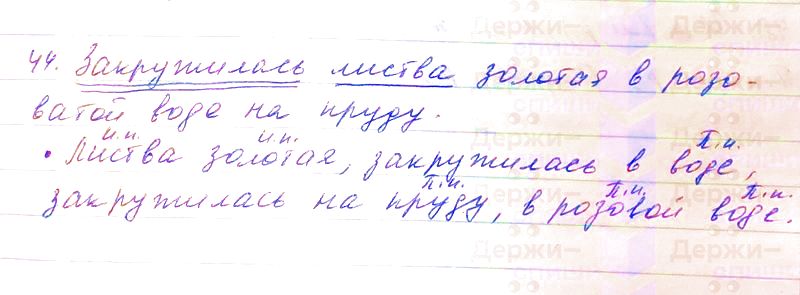 44. Закружилась листва золотая в розо-
ватой воде на пруду.
и.п. и.п. П.п.
• Листва золотая, закружилась в воде,
П.п. П.п. П.п.
закружилась на пруду, в розовой воде.
Держи– Держи–
спиши
Держи– Держи–
спиши
Держи– Держи–
спиши спиши